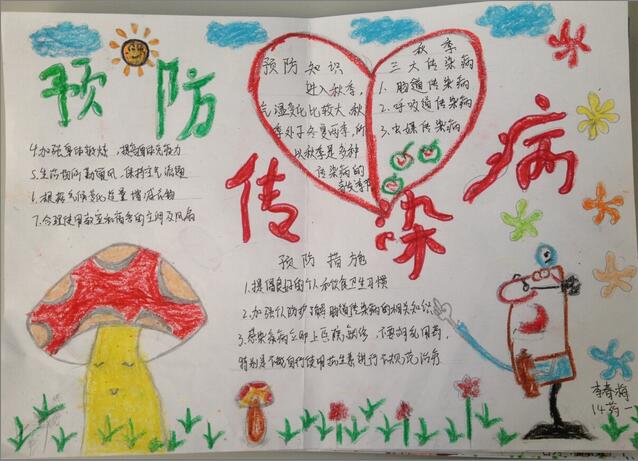 预防
传染病
预防知识
进入秋季，
气温变化比较大 秋
季处于冬夏两季，所
以秋季是多种
传染病的
高发季节
秋季
三大传染病
1. 肠道传染病
2. 呼吸道传染病
3. 虫媒传染病
预防措施
1. 提倡良好的个人和饮食卫生习惯
2. 加强个人防护了解肠道传染病的相关知识
3. 感染疾病立即上医院就诊，不要胡乱用药，
特别是不能自行使用抗生素进行不规范治疗
4. 加强身体锻炼，提高自身免疫力
5. 生活期间勤通风，保持空气流通
6. 根据气候变化适量增减衣物
7. 合理使用教室和宿舍的空调及风扇
李春梅
14药一